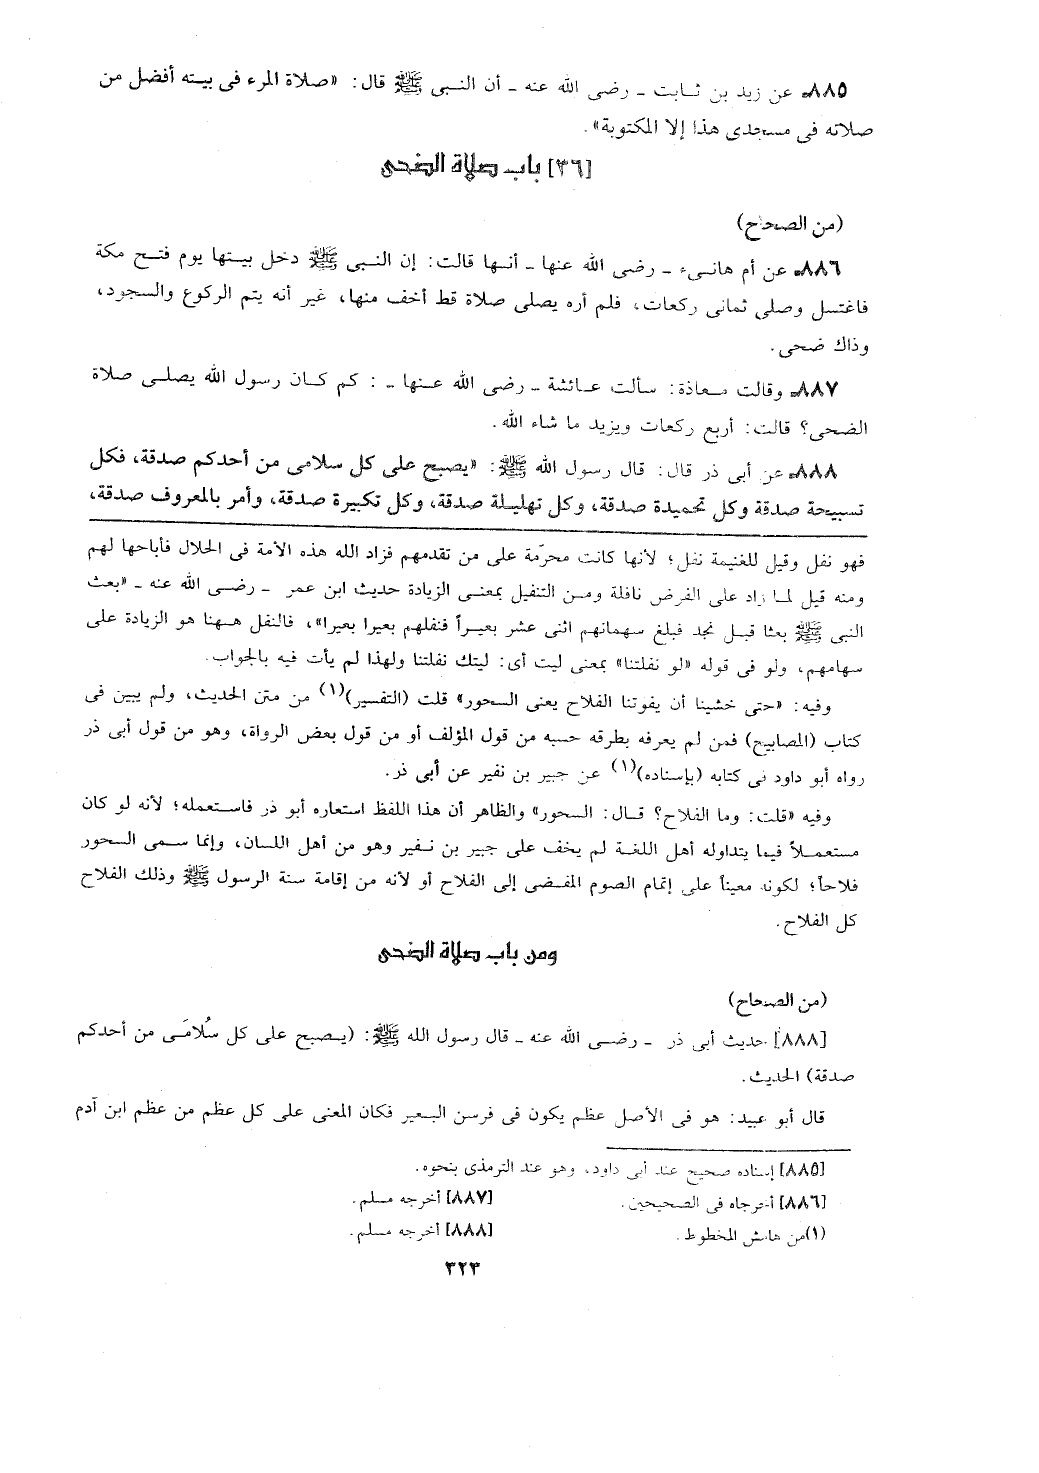 ٨٨٥ـ عن زيد بن ثابت ـ رضى الله عنه ـ أن النبى ﷺ قال: «صلاة المرء فى بيته أفضل من
صلاته فى مسجدى هذا إلا المكتوبة».
[٣٦] باب صلاة الضحى
(من الصحاح)
٨٨٦ـ عن أم هانىء ـ رضى الله عنها ـ أنها قالت: إن النبى ﷺ دخل بيتها يوم فتح مكة
فاغتسل وصلى ثمانى ركعات، فلم أره يصلى صلاة قط أخف منها، غير أنه يتم الركوع والسجود،
وذاك ضحى.
٨٨٧ـ وقالت معاذة: سألت عائشة ـ رضى الله عنها ـ : كم كان رسول الله يصلى صلاة
الضحى؟ قالت: أربع ركعات ويزيد ما شاء الله.
٨٨٨ـ عن أبى ذر قال: قال رسول الله ﷺ: «يصبح على كل سلامى من أحدكم صدقة، فكل
تسبيحة صدقة وكل تحميدة صدقة، وكل تهليلة صدقة، وكل تكبيرة صدقة، وأمر بالمعروف صدقة،
فهو نفل وقيل للغنيمة نفل؛ لأنها كانت محرّمة على من تقدمهم فزاد الله هذه الأمة فى الحلال فأباحها لهم
ومنه قيل لما زاد على الفرض نافلة ومن التنفيل بمعنى الزيادة حديث ابن عمر ـ رضى الله عنه ـ «بعث
النبى ﷺ بعثا قبل نجد فبلغ سهمانهم اثنى عشر بعيراً فنفلهم بعيرا بعيرا»، فالنفل ههنا هو الزيادة على
سهامهم، ولو فى قوله «لو نفلتنا» بمعنى ليت أى: ليتك نفلتنا ولهذا لم يأت فيه بالجواب.
وفيه: «حتى خشينا أن يفوتنا الفلاح يعنى السحور» قلت (التفسير)(١) من متن الحديث، ولم يبين فى
كتاب (المصابيح) فمن لم يعرفه بطرقه حسبه من قول المؤلف أو من قول بعض الرواة، وهو من قول أبى ذر
رواه أبو داود فى كتابه (بإسناده)(١) عن جبير بن نفير عن أبى ذر.
وفيه «قلت: وما الفلاح؟ قال: السحور» والظاهر أن هذا اللفظ استعاره أبو ذر فاستعمله؛ لأنه لو كان
مستعملاً فيما يتداوله أهل اللغة لم يخف على جبير بن نفير وهو من أهل اللسان، وإنما سمى السحور
فلاحاً؛ لكونه معيناً على إتمام الصوم المفضى إلى الفلاح أو لأنه من إقامة سنة الرسول ﷺ وذلك الفلاح
كل الفلاح.
ومن باب صلاة الضحى
(من الصحاح)
[٨٨٨] حديث أبى ذر ـ رضى الله عنه ـ قال رسول الله ﷺ: (يصبح على كل سُلامَى من أحدكم
صدقة) الحديث.
قال أبو عبيد: هو فى الأصل عظم يكون فى فرسن البعير فكان المعنى على كل عظم من عظم ابن آدم
[٨٨٥] إسناده صحيح عند أبى داود، وهو عند الترمذى بنحوه.
[٨٨٦] أخرجاه فى الصحيحين. [٨٨٧] أخرجه مسلم.
(١)من هامش المخطوط. [٨٨٨] أخرجه مسلم.
٣٢٣